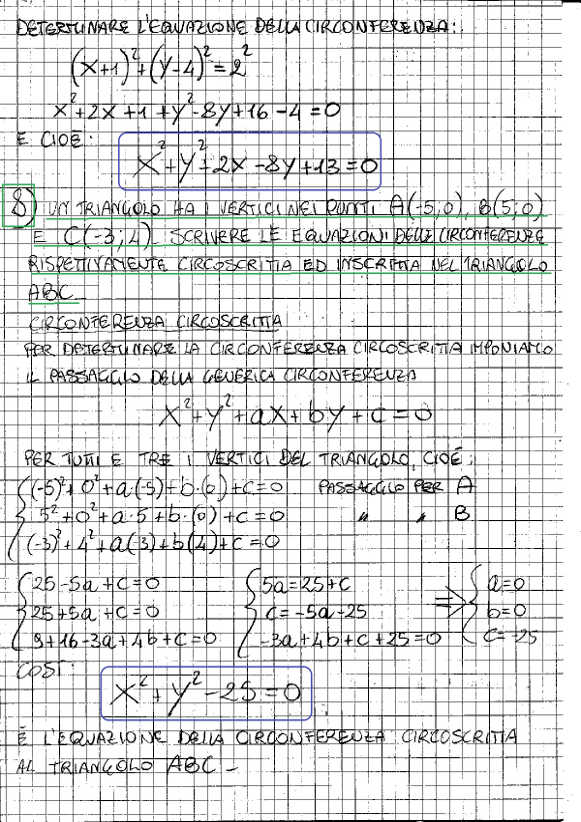 DETERMINARE L'EQUAZIONE DELLA CIRCONFERENZA:
(x+1)²+(y-4)²=2²
x²+2x+1+y²-8y+16-4=0
E CIOÈ:
x²+y²+2x-8y+13=0
8) UN TRIANGOLO HA I VERTICI NEI PUNTI A(-5;0), B(5;0)
E C(-3;4). SCRIVERE LE EQUAZIONI DELLE CIRCONFERENZE
RISPETTIVAMENTE CIRCOSCRITTA ED INSCRITTA NEL TRIANGOLO
ABC.
CIRCONFERENZA CIRCOSCRITTA
PER DETERMINARE LA CIRCONFERENZA CIRCOSCRITTA IMPONIAMO
IL PASSAGGIO DELLA GENERICA CIRCONFERENZA
x²+y²+ax+by+c=0
PER TUTTI E TRE I VERTICI DEL TRIANGOLO, CIOÈ:
(-5)²+0²+a(-5)+b·(0)+c=0 PASSAGGIO PER A
5²+0²+a·5+b·(0)+c=0 " " B
(-3)²+4²+a(-3)+b(4)+c=0
25-5a+c=0 5a=25+c a=0
25+5a+c=0 c=-5a-25 ⇒ b=0
9+16-3a+4b+c=0 -3a+4b+c+25=0 c=-25
COSÌ
x²+y²-25=0
È L'EQUAZIONE DELLA CIRCONFERENZA CIRCOSCRITTA
AL TRIANGOLO ABC.